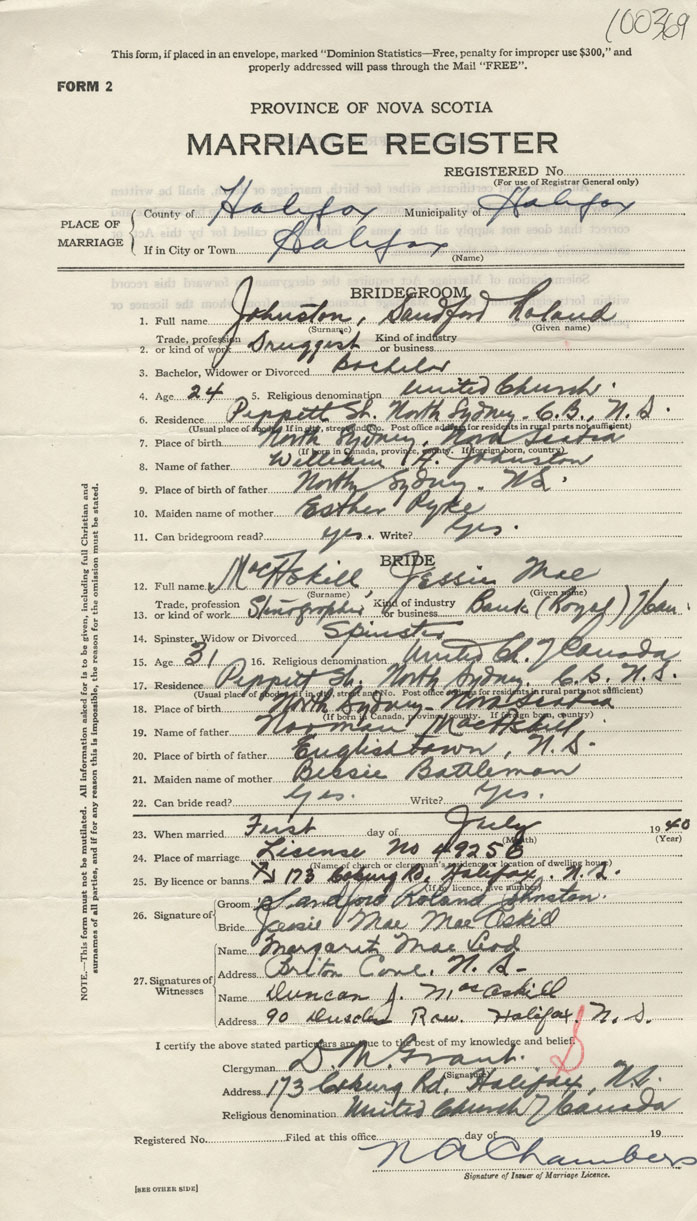 100369
This form, if placed in an envelope, marked "Dominion Statistics—Free, penalty for improper use $300," and
properly addressed will pass through the Mail "FREE".
FORM 2
PROVINCE OF NOVA SCOTIA
MARRIAGE REGISTER
REGISTERED No.
(For use of Registrar General only)
PLACE OF MARRIAGE
County of Halifax Municipality of Halifax
If in City or Town Halifax
(Name)
BRIDEGROOM
1. Full name Johnston, Sandford Roland
(Surname) (Given name)
Trade, profession Kind of industry
2. or kind of work Druggist or business
3. Bachelor, Widower or Divorced Bachelor
4. Age 24 5. Religious denomination United Church.
6. Residence Peppett St. North Sydney. C.B., N.S.
(Usual place of abode. If in city, street and No. Post office address for residents in rural parts not sufficient)
7. Place of birth North Sydney. Nova Scotia
(If born in Canada, province, county. If foreign born, country)
8. Name of father William A. Johnston
9. Place of birth of father North Sydney. N.S.
10. Maiden name of mother Esther Pyke
11. Can bridegroom read? yes. Write? yes.
BRIDE
12. Full name MacAskill, Jessie Mae
(Surname) (Given name)
Trade, profession Kind of industry
13. or kind of work Stenographer or business Bank (Royal) Can.
14. Spinster, Widow or Divorced Spinster
15. Age 31 16. Religious denomination United Ch. of Canada
17. Residence Peppett St. North Sydney. C.B. N.S.
(Usual place of abode. If in city, street and No. Post office address for residents in rural parts not sufficient)
18. Place of birth North Sydney - Nova Scotia
(If born in Canada, province, county. If foreign born, country)
19. Name of father Norman MacAskill
20. Place of birth of father Englishtown, N.S.
21. Maiden name of mother Bessie Battleman
22. Can bride read? Yes. Write? Yes.
23. When married First day of July 1940
(Month) (Year)
24. Place of marriage Lisense No 49258
(Name of church or clergyman's residence or location of dwelling house)
25. By licence or banns 173 Coburg Rd. Halifax. N.S.
(If by licence, give number)
26. Signature of
Groom Sandford Roland Johnston.
Bride Jessie Mae MacAskill
27. Signatures of Witnesses
Name Margaret MacLeod
Address Briton Cove. N.S.
Name Duncan J. MacAskill
Address 90 Row. Halifax. N.S.
I certify the above stated particulars are true to the best of my knowledge and belief.
Clergyman D. M. Grant.
(Signature)
Address 173 Coburg Rd, Halifax, N.S.
Religious denomination United Church of Canada
Registered No. Filed at this office day of 19
N A Chambers
Signature of Issuer of Marriage Licence.
[SEE OTHER SIDE]
NOTE.—This form must not be mutilated. All information asked for is to be given, including full Christian and
surnames of all parties, and if for any reason this is impossible, the reason for the omission must be stated.